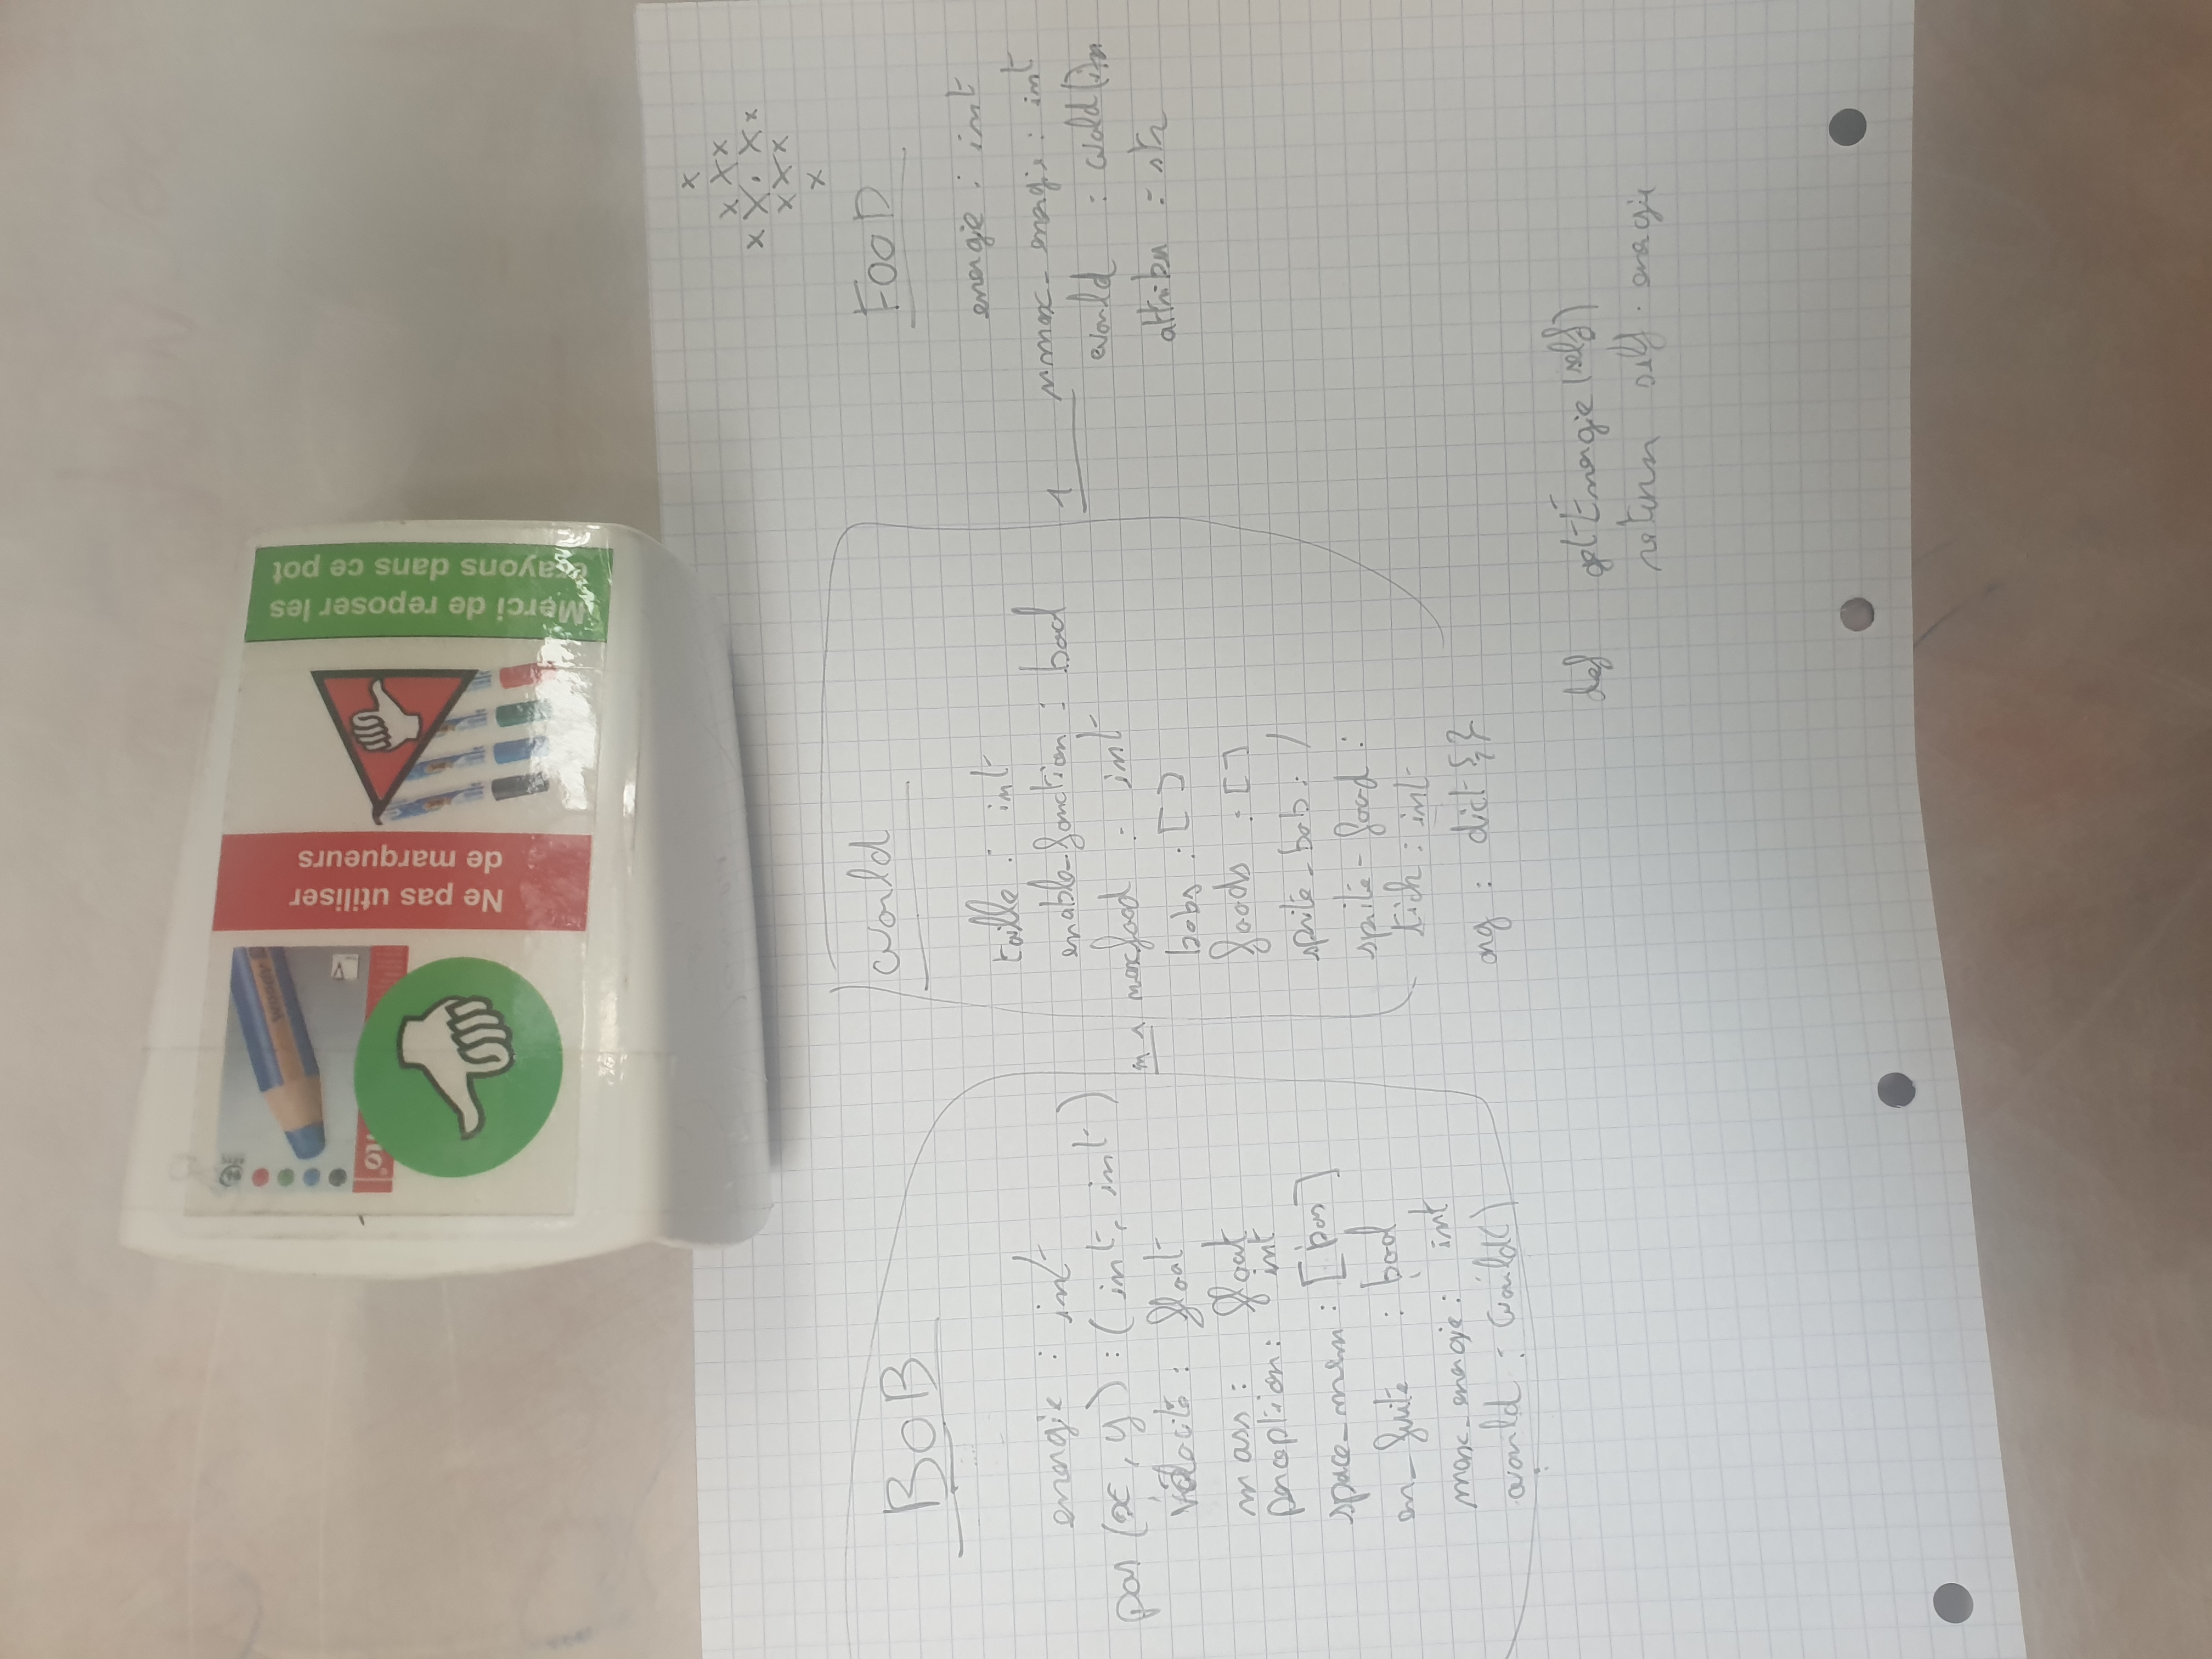 woody
Ne pas utiliser
de marqueurs
Merci de reposer les
crayons dans ce pot
BOB
energie : int
pos (x, y) : (int, int)
vélocité : float
mass : float
perception : int
space_mem : [pos]
en_fuite : bool
max_energie : int
world : World()
world
taille : int
enable_fonction : bool
maxfood : int
bobs : []
foods : []
sprite_bob : /
sprite-food :
tick : int
arg : dict {,}
FOOD
energie : int
max_energie : int
world : World()
attribu : str
1
n 1
def getEnergie(self)
return self.energie